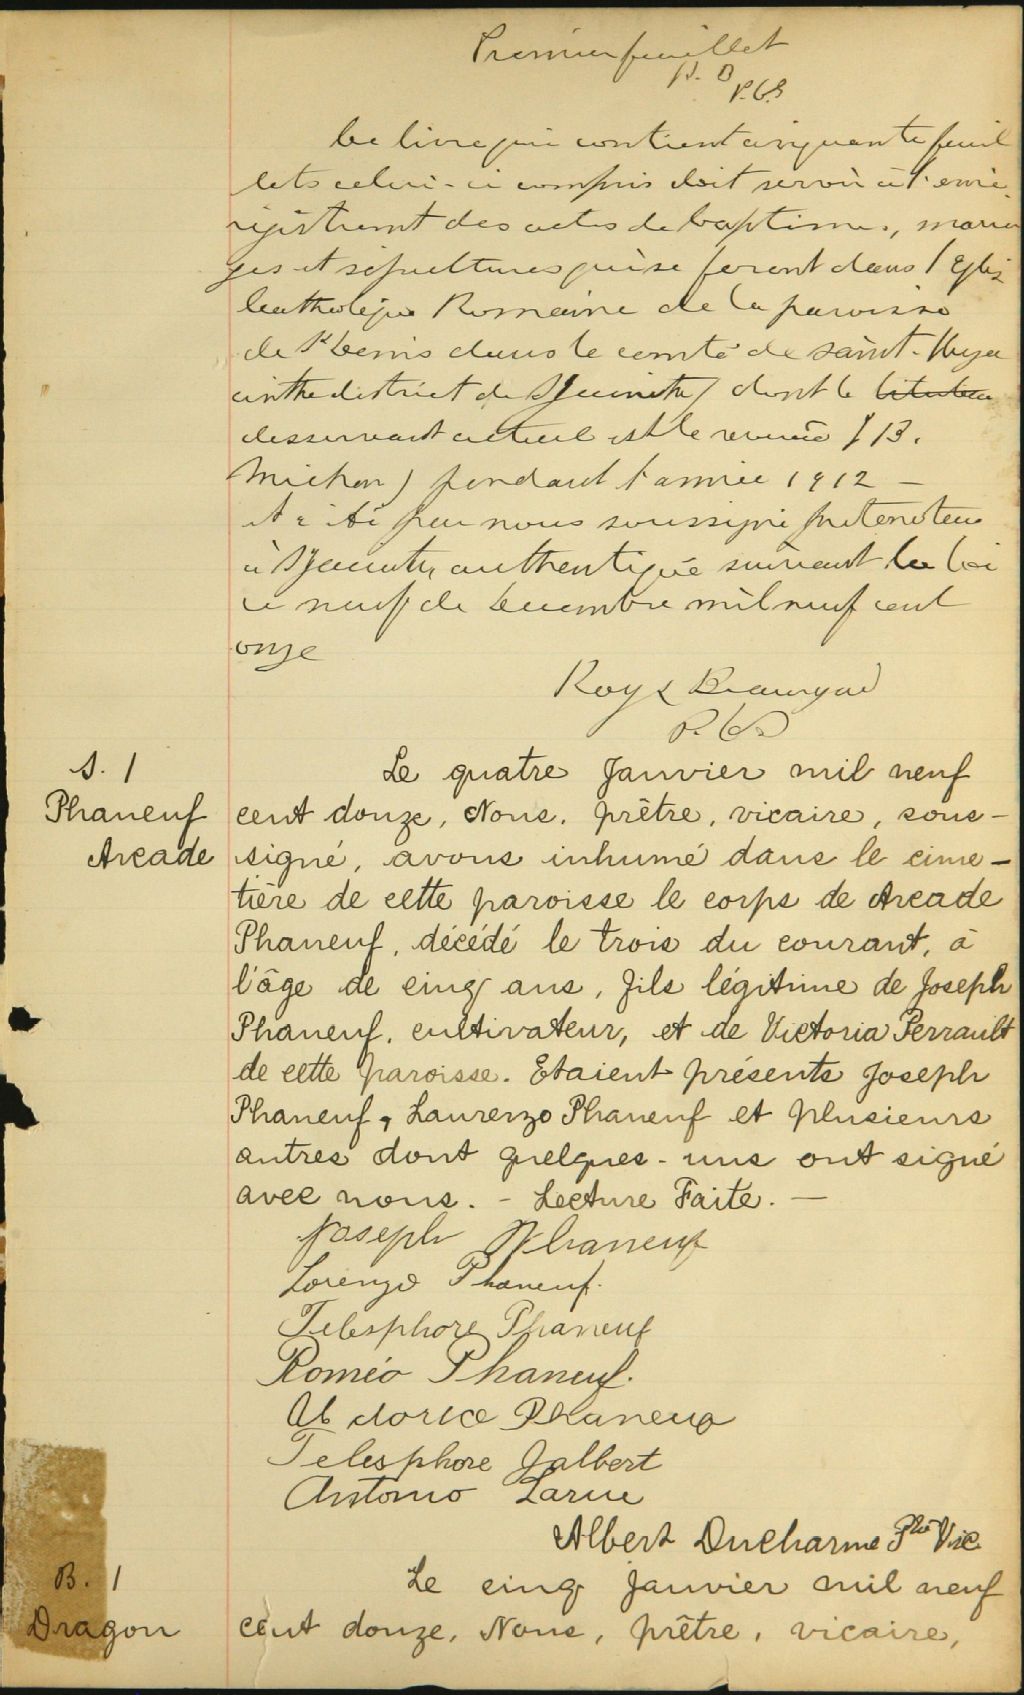 Premier feuillet
R. B
P.C.S
Ce livre qui contient cinquante feuil
lets celui-ci compris doit servir à l'enre
gistrement des actes de baptêmes, maria
ges et sépultures qui se feront dans l'Eglise
Catholique Romaine de la paroisse
de St Denis dans le comté de saint-Hya
cinthe district de St Hyacinthe / dont le
desservant actuel est le revérend J B.
Michon) pendant l'année 1912 —
et a été par nous soussigné protonotaire
à St Hyacinthe authentiqué suivant la loi
ce neuf de Decembre mil neuf cent
onze
Roy & Beauregard
P. C. S
S. 1
Phaneuf
Arcade
Le quatre Janvier mil neuf
cent douze, Nous, prêtre, vicaire, sous-
signé, avons inhumé dans le cime-
tière de cette paroisse le corps de Arcade
Phaneuf, décédé le trois du courant, à
l'âge de cinq ans, fils légitime de Joseph
Phaneuf, cultivateur, et de Victoria Perrault
de cette paroisse. Etaient présents Joseph
Phaneuf, Laurenzo Phaneuf et plusieurs
autres dont quelques-uns ont signé
avec nous. - Lecture Faite. —
Joseph Phaneuf
Lorenzo Phaneuf.
Telesphore Phaneuf
Roméo Phaneuf.
Phaneuf
Telesphore Jalbert
Antonio Larue
Albert Ducharme Ptre Vic.
B. 1
Dragon
Le cinq Janvier mil neuf
cent douze, Nous, prêtre, vicaire,